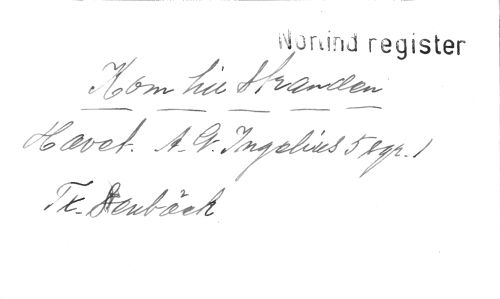 Norlind register
Kom till stranden
Havet. A. G. Ingelius 5 sgr. 1
Tx. Stenbäck